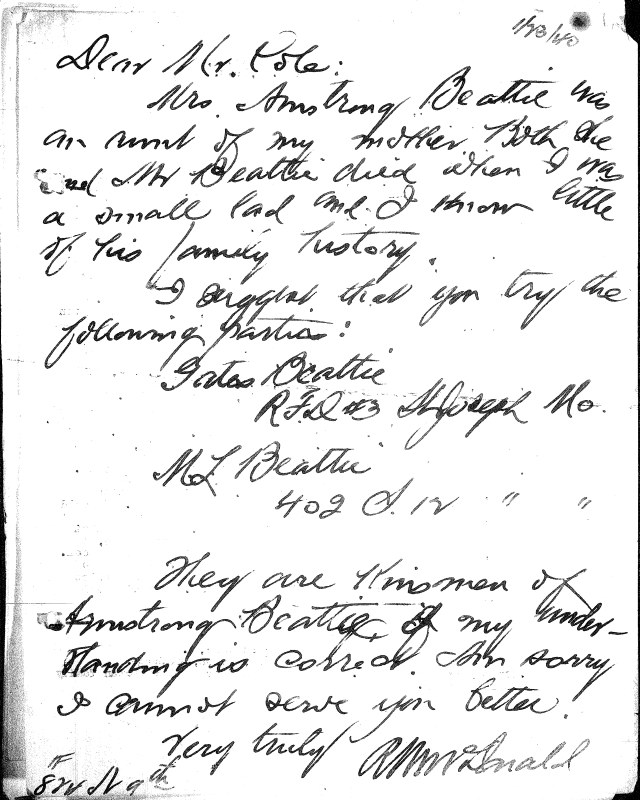 1/23/40
Dear Mr. Cole:
Mrs. Armstrong Beattie was
an aunt of my mother. Both she
and Mr Beattie died when I was
a small lad and I know little
of his family history.
I suggest that you try the
following parties:
Gates Beattie
RFD #3 St Joseph Mo.
ML Beattie
402 S. 12 " "
They are kinsmen of
Armstrong Beattie, if my under-
standing is correct. Am sorry
I cannot serve you better.
Very truly RM McDonald
N 9th